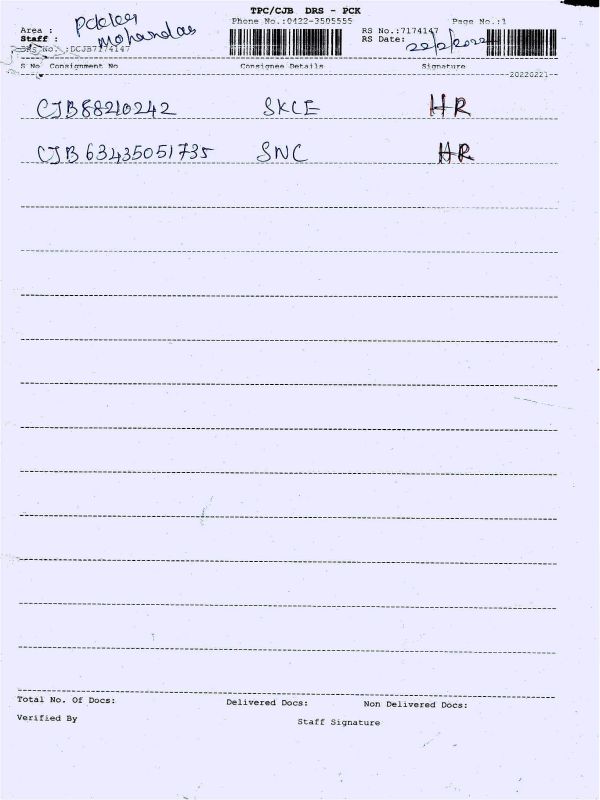 TPC/CJB DRS - PCK
Phone No.:0422-3505555
Page No.:1
Area :
Staff : Mohandas
RS No.:7174147
RS Date: 22/2/2022
DRS No.:DCJB7174147
S No Consignment No Consignee Details Signature
--20220221--
CJB88210242 SKCE HR
CJB63435051735 SNC HR
Total No. Of Docs: Delivered Docs: Non Delivered Docs:
Verified By Staff Signature